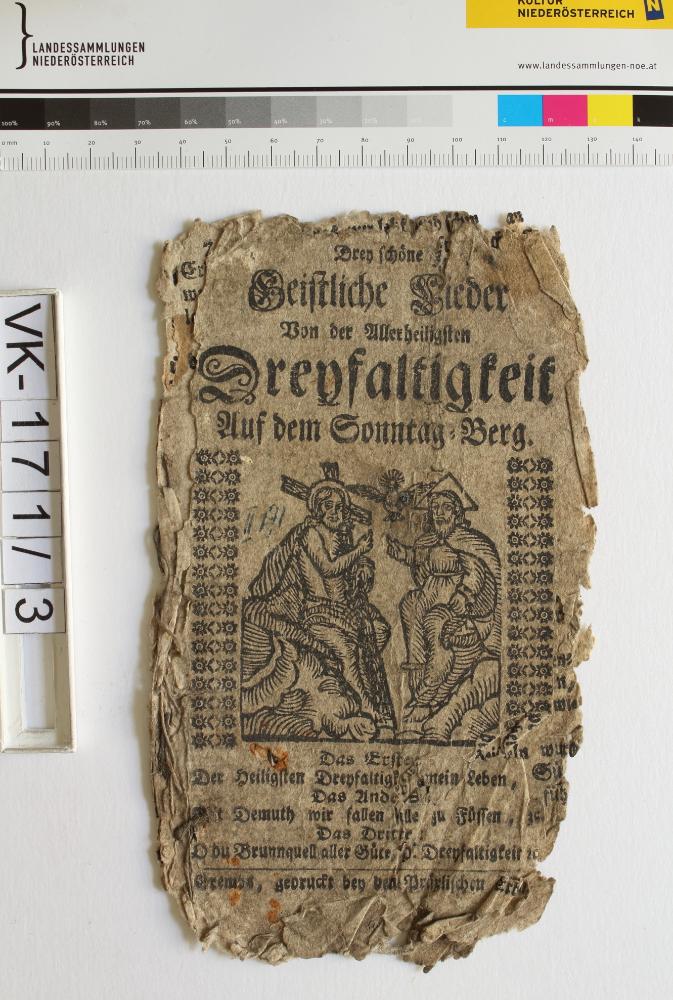 KULTUR
NIEDERÖSTERREICH
N
LANDESSAMMLUNGEN
NIEDERÖSTERREICH
www.landessammlungen-noe.at
100% 90% 80% 70% 60% 50% 40% 30% 20% 10% c m y k
0 mm 10 20 30 40 50 60 70 80 90 100 110 120 130 140
VK-1717/3
Drey schöne
Geistliche Lieder
Von der Allerheiligsten
Dreyfaltigkeit
Auf dem Sonntag-Berg.
Das Erste
Der Heiligsten Dreyfaltigk mein Leben,
Das Ande
Demuth wir fallen alle zu Füssen,
Das Dritte:
O du Brunnquell aller Güte, O Dreyfaltigkeit
Crembs, gedruckt bey den Präxlischen